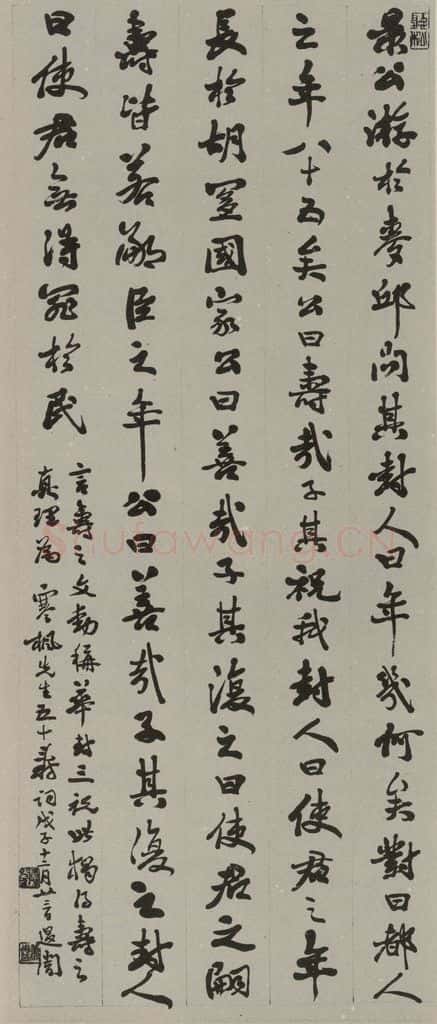 景公游於麥邱問其封人曰年幾何矣對曰鄙人
之年八十五矣公曰壽哉子其祝我封人曰使君之年
長於胡宜國家公曰善哉子其復之曰使君之嗣
壽皆若鄙臣之年公曰善哉子其復之封人
曰使君無得罪於民
言壽之文動稱華封三祝此獨得壽之
真理為 寒楓先生五十壽詞戊子十二月廿 遐闇
shufawang.CN